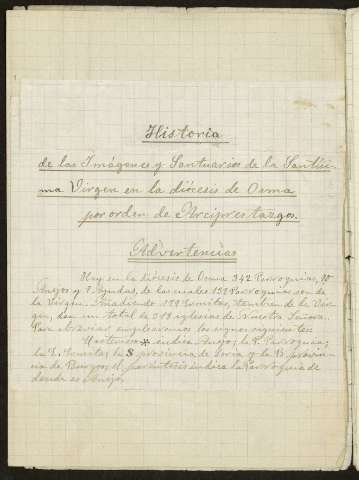 Historia
de las Imágenes y Santuarios de la Santísi-
ma Virgen en la diócesis de Osma
por orden de Arciprestazgos.
Advertencias
Hay en la diócesis de Osma 342 Parroquias,
Anejos y 7 Ayudas, de las cuales 1 Parroquias son de
la Virgen. Añadiendo 179 Ermitas, también de la Vir-
gen, dan un total de iglesias de Nuestra Señora.
Para abreviar emplearemos los signos siguientes:
* indica Anejo, la P. Parroquia,
la E. Ermita, la S provincia de Soria y la B. provin-
cia de Burgos; el paréntesis indica la Parroquia de
donde es Anejo.